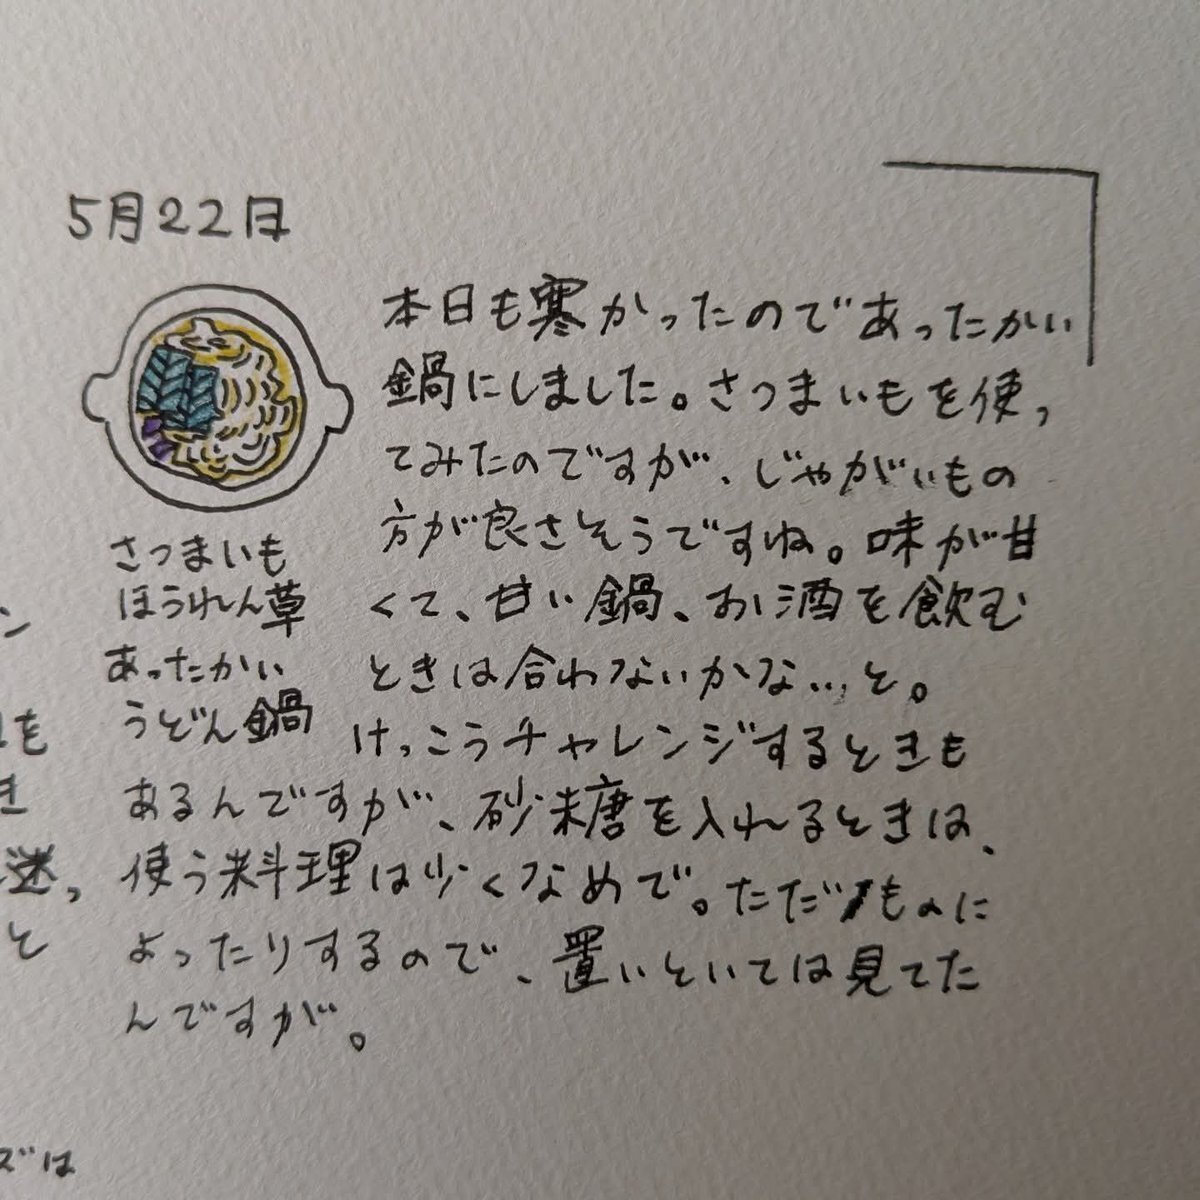 5月22日
さつまいも
ほうれん草
あったかい
うどん鍋
本日も寒かったのであったかい
鍋にしました。さつまいもを使っ
てみたのですが、じゃがいもの
方が良さそうですね。味が甘
くて、甘い鍋、お酒を飲む
ときは合わないかな…と。
けっこうチャレンジするときも
あるんですが、砂糖を入れるときは、
使う料理は少くなめで。ただ ものに
よったりするので、置いといては見てた
んですが。
ン
も
き
迷,
と
ズは